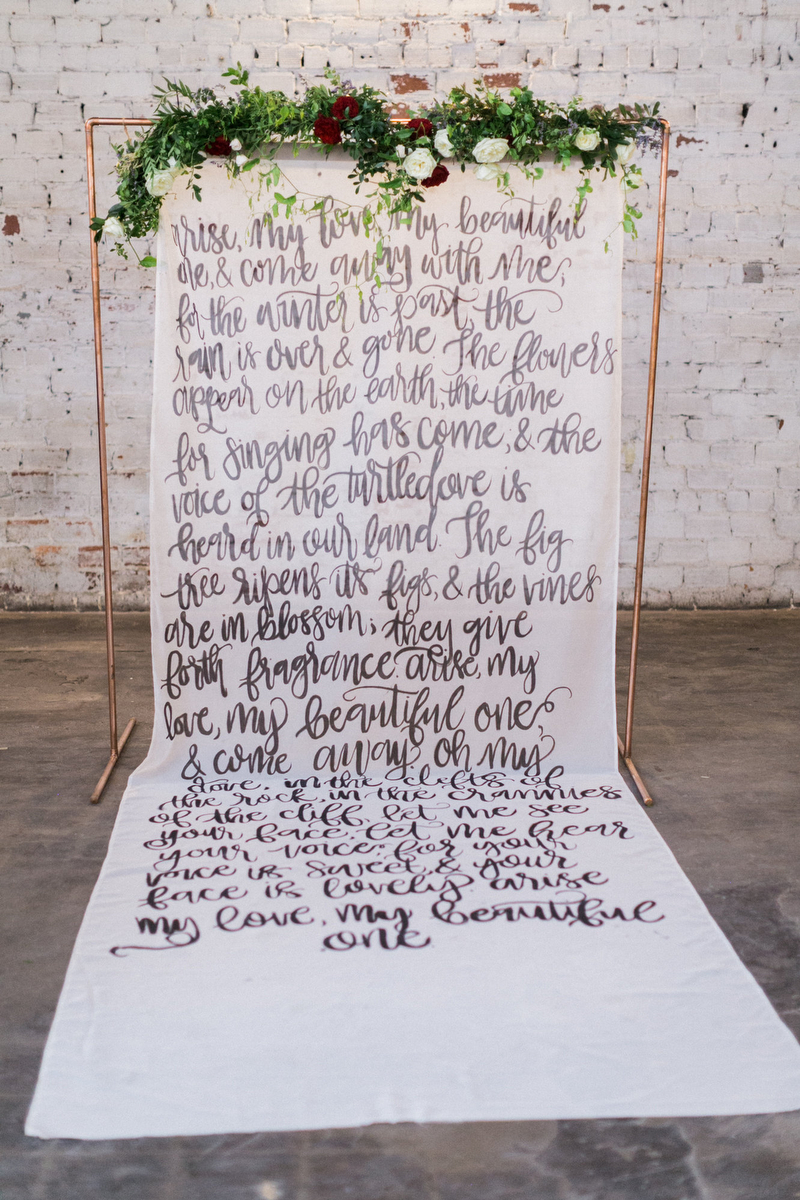 arise, my love, my beautiful
one, & come away with me;
for the winter is past, the
rain is over & gone. The flowers
appear on the earth, the time
for singing has come, & the
voice of the turtledove is
heard in our land. The fig
tree ripens its figs, & the vines
are in blossom; they give
forth fragrance. arise, my
love, my beautiful one,
& come away. oh my
dove, in the clefts of
the rock, in the crannies
of the cliff, let me see
your face, let me hear
your voice; for your
voice is sweet, & your
face is lovely. arise
my love, my beautiful
one